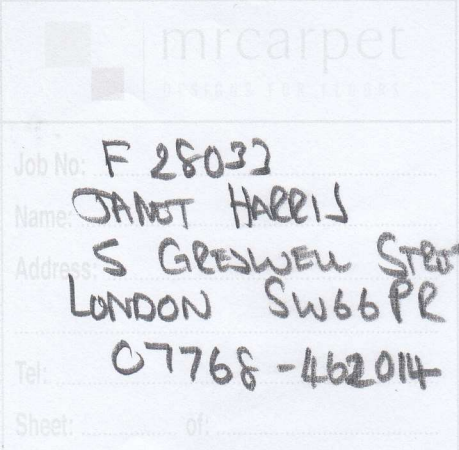 mrcarpet
DESIGNS FOR FLOORS
Job No: F 28033
Name: JANET HARRIS
Address: 5 GRESWELL STREET
LONDON SW6 6PR
Tel: 07768-462014
Sheet: of: